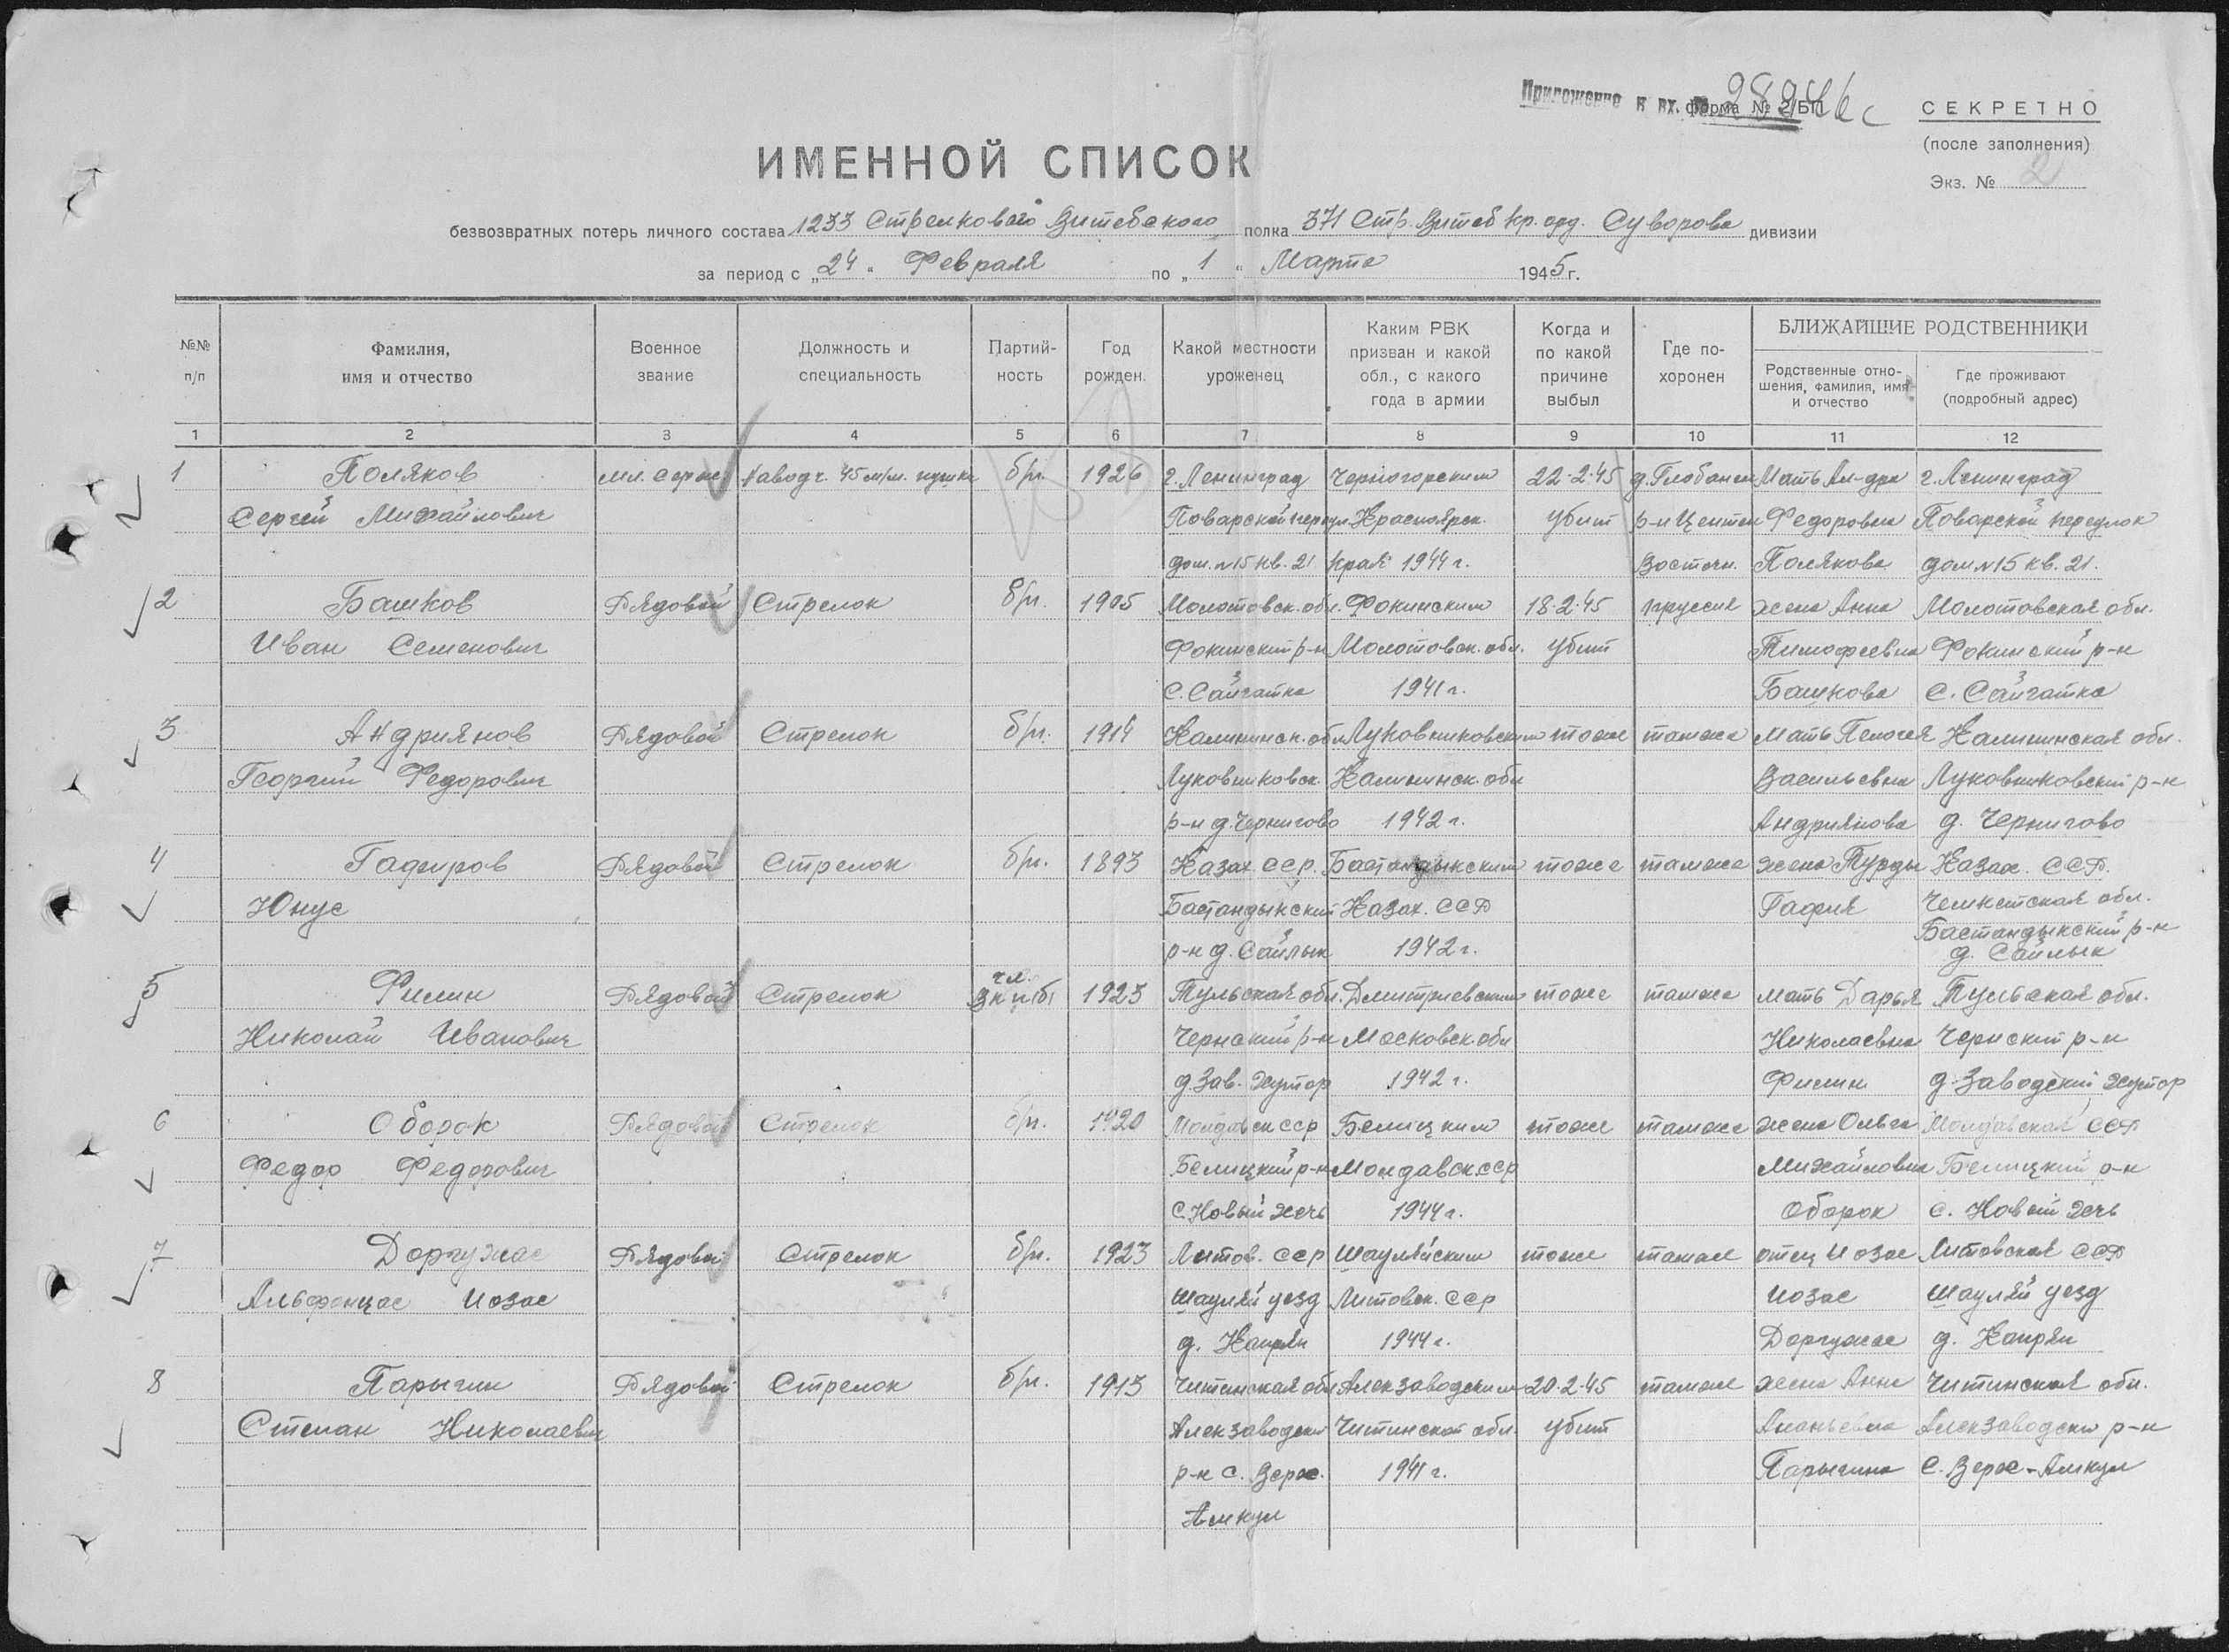 Приложение к вх. форма № 2/БП
СЕКРЕТНО
(после заполнения)
Экз. № 2
ИМЕННОЙ СПИСОК
безвозвратных потерь личного состава 1233 Стрелкового Витебского полка 371 Стр. Витеб кр. орд. Суворова дивизии
за период с „24“ Февраля по „1“ Марта 1945 г.
№№ п/п
Фамилия, имя и отчество
Военное звание
Должность и специальность
Партий- ность
Год рожден.
Какой местности уроженец
Каким РВК призван и какой обл., с какого года в армии
Когда и по какой причине выбыл
Где по- хоронен
БЛИЖАЙШИЕ РОДСТВЕННИКИ
Родственные отно- шения, фамилия, имя и отчество
Где проживают (подробный адрес)
1 2 3 4 5 6 7 8 9 10 11 12
1 Поляков мл. серж. Наводч. 45 м/м. пушки б/п. 1926 г. Ленинград Черногорским 22-2-45 Мать Ал-дра г. Ленинград
Сергей Михайлович Поварской Красноярск. убит р-н Федоровна Поварской
дом. №15 кв. 21 края 1944 г. Восточн. Полякова дом №15 кв. 21.
2 Башков Рядовой Стрелок б/п. 1905 Молотовск. обл. Фокинским 18-2-45 пруссия жена Анна Молотовская обл.
Иван Семенович Фокинский р-н Молотовск. обл. убит Тимофеевна Фокинский р-н
с. Сайгатка 1941 г. Башкова с. Сайгатка
3 Андриянов Рядовой Стрелок б/п. 1914 Калининск. обл Луковниковским тоже тамже Мать Пелогея Калининская обл.
Георгий Федорович Луковниковск. Калининск. обл Васильевна Луковниковский р-н
р-н д. Чернигово 1942 г. Андриянова д. Чернигово
4 Гафиров Рядовой Стрелок б/п. 1893 Казах. сср. Бастандыкским тоже тамже жена Турды Казах. ССР.
Юнус Бастандыкский Казах. ССР Гафия Чемкетская обл.
Бастандыкский р-н
р-н д. Сайлык 1942 г. д. Сайлык
5 Филин Рядовой Стрелок чл. вкп(б) 1923 Тульская обл. Дмитриевским тоже тамже мать Дарья Тульская обл.
Николай Иванович Чернский р-н Московск. обл Николаевна Чернский р-н
д. Зав. Хутор 1942 г. Филин д. Заводский Хутор
6 Оборок Рядовой Стрелок б/п. 1920 Молдавск сср Белицким тоже тамже жена Ольга Молдавская ССР
Федор Федорович Белицкий р-н Молдавск. сср Михайловна Белицкий р-н
с. Новый 1944 г. Оборок с. Новый
7 Доргужас Рядовой Стрелок б/п. 1923 Литов. сср Шауляйским тоже тамже отец Иозас Литовская ССР
Альфонцас Иозас Шауляй уезд Литовск. сср Иозас Шауляй уезд
д. 1944 г. Доргужас д.
8 Парыгин Рядовой Стрелок б/п. 1913 Читинская обл Алекзаводским 20-2-45 тамже жена Анна Читинская обл.
Степан Николаевич Алекзаводски Читинской обл. убит Ананьевна Алекзаводски р-н
р-н с. 1941 г. Парыгина с.